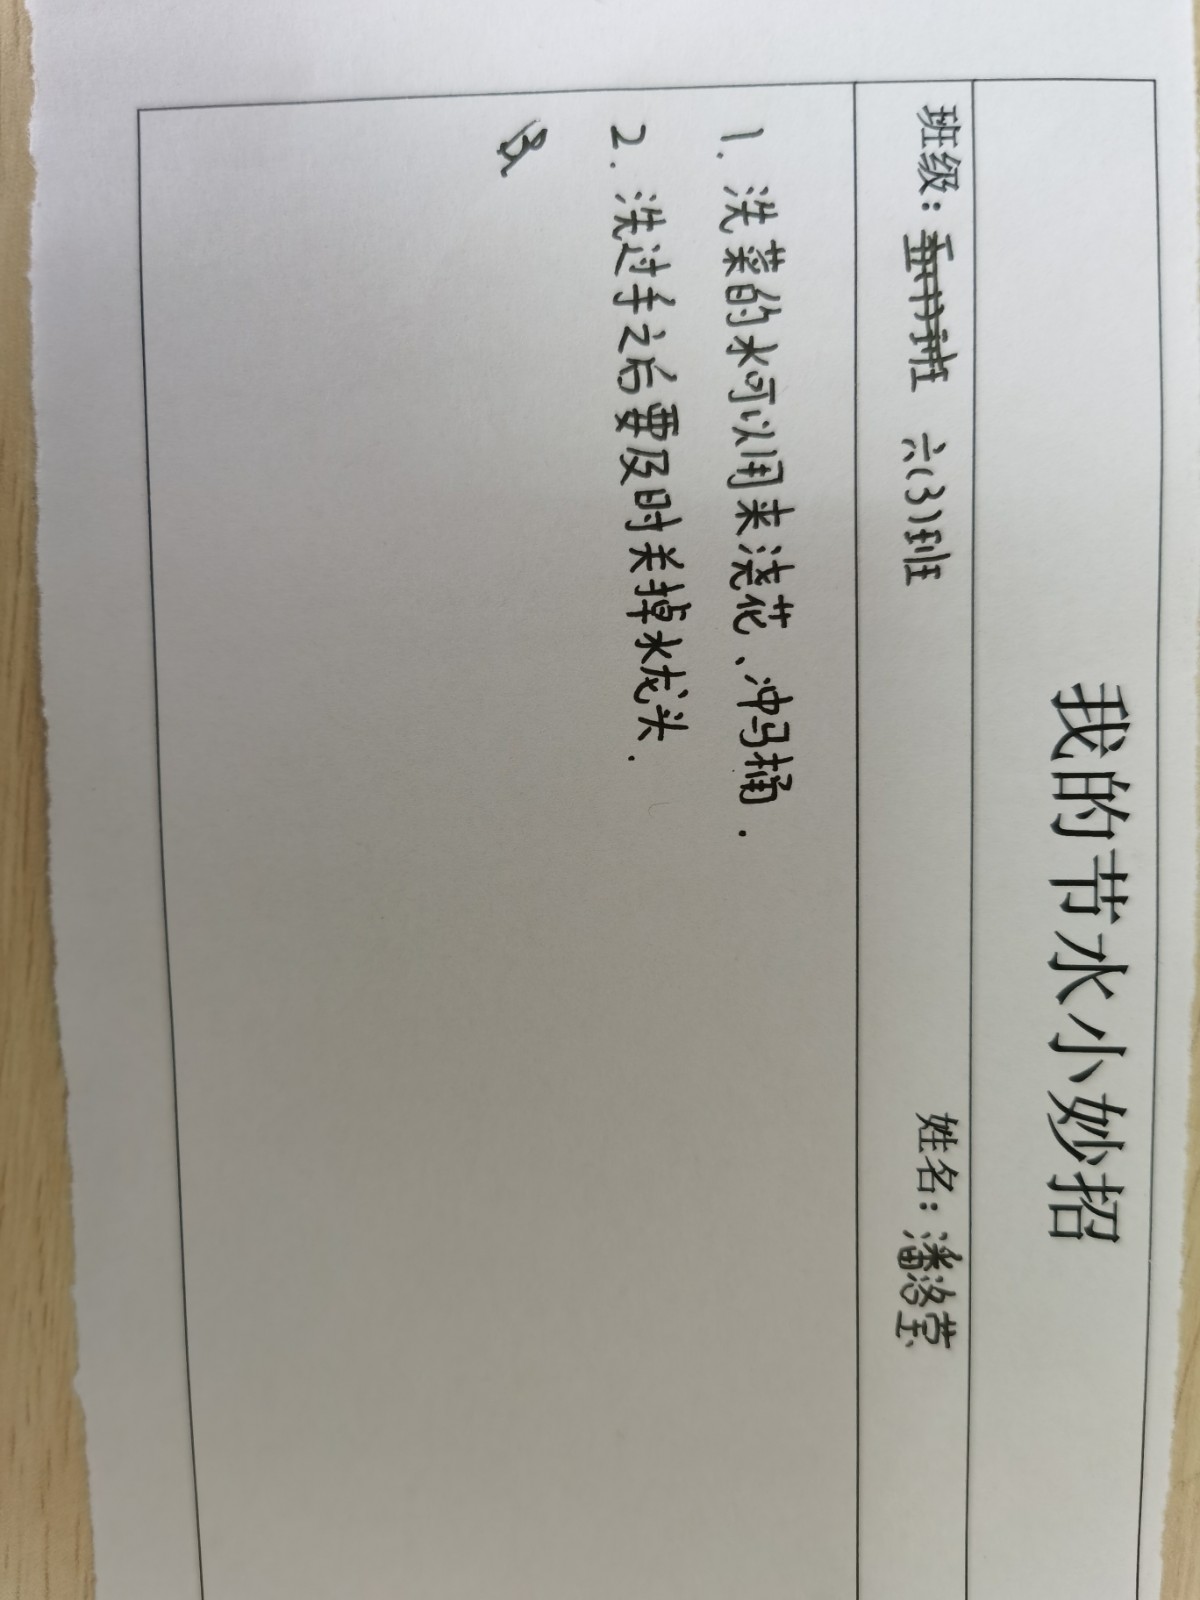 我的节水小妙招
班级： 六(3)班 姓名：潘洛莹
1. 洗菜的水可以用来浇花、冲马桶.
2. 洗过手之后要及时关掉水龙头.